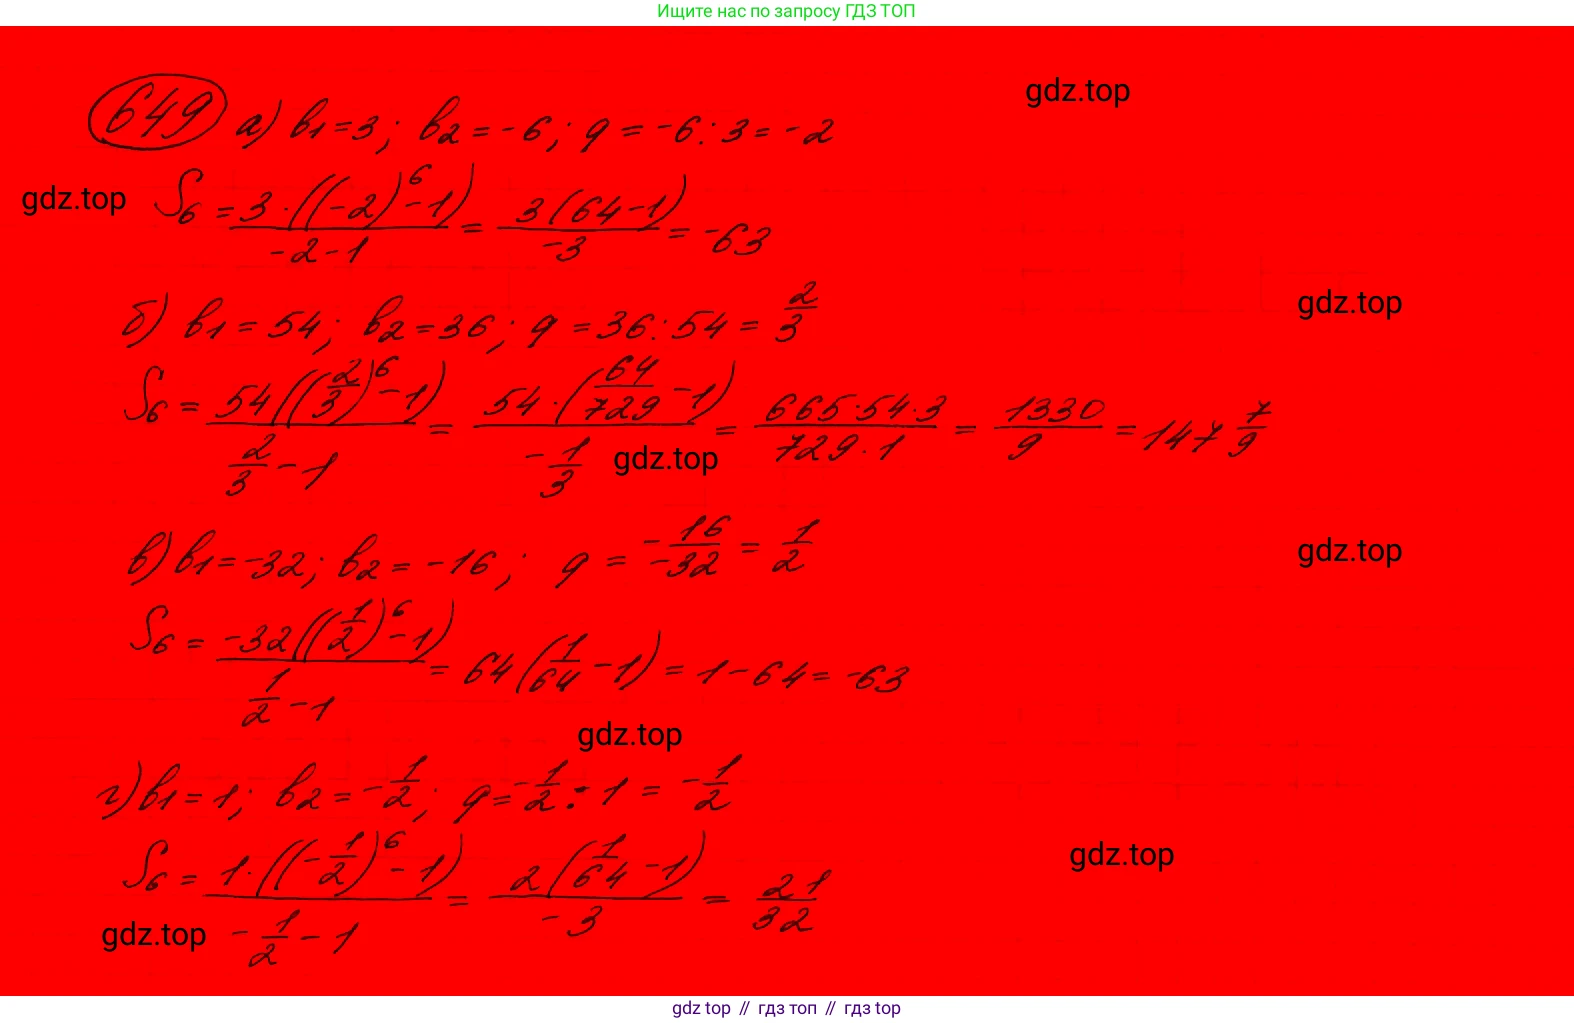 Ищите нас по запросу ГДЗ ТОП
gdz.top
649 а) b₁=3; b₂=-6; q=-6:3=-2
gdz.top
S₆ = (3·((-2)⁶-1))/(-2-1) = (3(64-1))/(-3) = -63
gdz.top
б) b₁=54; b₂=36; q=36:54=2/3
S₆ = (54((2/3)⁶-1))/(2/3-1) = (54·(64/729-1))/(-1/3) = (665·54·3)/(729·1) = 1330/9 = 147 7/9
gdz.top
в) b₁=-32; b₂=-16; q = -16/-32 = 1/2
gdz.top
S₆ = (-32((1/2)⁶-1))/(1/2-1) = 64(1/64-1) = 1-64 = -63
gdz.top
г) b₁=1; b₂=-1/2; q=-1/2:1=-1/2
S₆ = (1·((-1/2)⁶-1))/(-1/2-1) = (2(1/64-1))/(-3) = 21/32
gdz.top
gdz.top
gdz top // гдз топ // гдз top